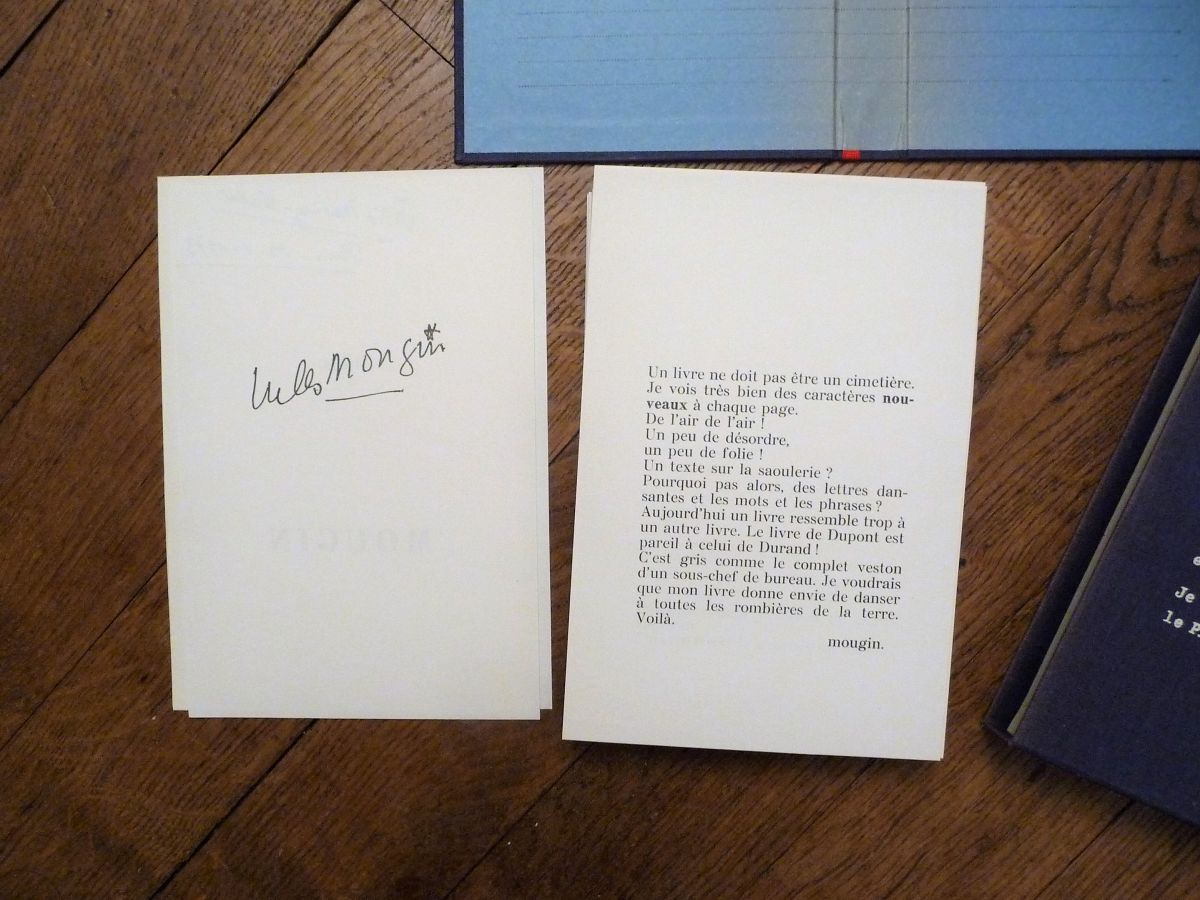 Jules Mougin
Un livre ne doit pas être un cimetière.
Je vois très bien des caractères nou-
veaux à chaque page.
De l'air de l'air !
Un peu de désordre,
un peu de folie !
Un texte sur la saoulerie ?
Pourquoi pas alors, des lettres dan-
santes et les mots et les phrases ?
Aujourd'hui un livre ressemble trop à
un autre livre. Le livre de Dupont est
pareil à celui de Durand !
C'est gris comme le complet veston
d'un sous-chef de bureau. Je voudrais
que mon livre donne envie de danser
à toutes les rombières de la terre.
Voilà.
mougin.
Je
le